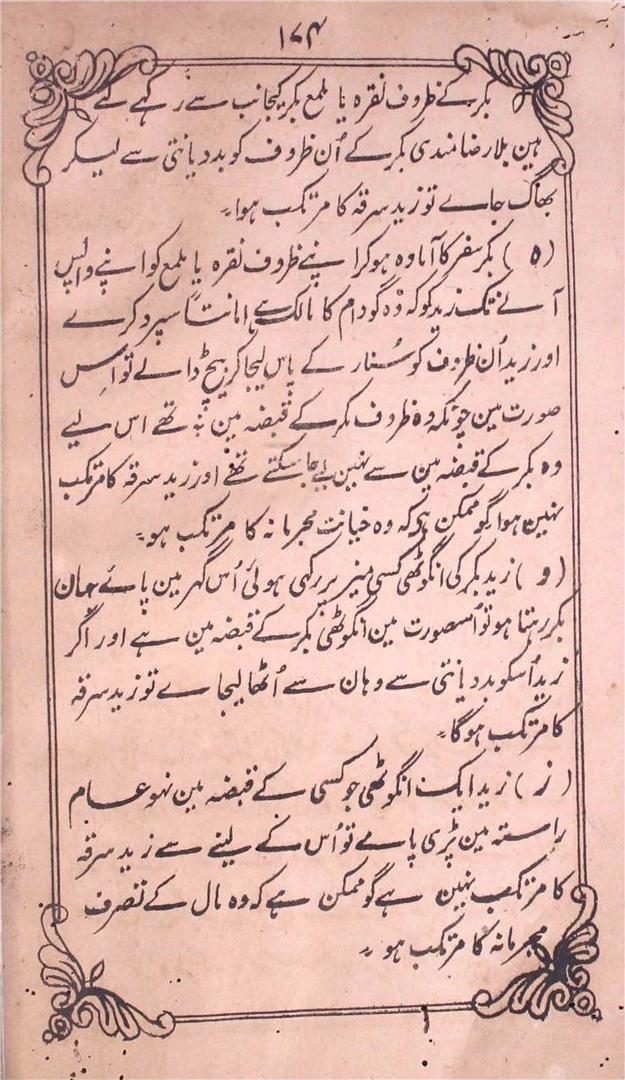 ۱۷۴
بکر کے ظروف نقرہ یا ملمع بکر کیجانب سے رکھے گئے
ہین بلا رضامندی بکر کے اُن ظروف کو بددیانتی سے لیکر
بھاگ جاے تو زید سرقہ کا مرتکب ہوا۔
(ہ) بکر سفر کا آمادہ ہو کر اپنے ظروف نقرہ یا ملمع کو اپنے واپس
آنے تک زید کو کہ وہ گودام کا مالک ہے امانتاً سپرد کرے
اور زید اُن ظروف کو سُنار کے پاس لیجا کر بیچ ڈالے تو اس
صورت مین چونکہ وہ ظروف بکر کے قبضہ مین نہ تھے اس لیے
وہ بکر کے قبضہ مین سے نہین لیے جا سکتے تھے اور زید سرقہ کا مرتکب
نہین ہوا گو ممکن ہے کہ وہ خیانت مجرمانہ کا مرتکب ہو۔
(و) زید بکر کی انگوٹھی کسی میز پر رکھی ہوئی اُس گھر مین پائے جہان
بکر رہتا ہو تو اُسصورت مین انگوٹھی بکر کے قبضہ مین ہے اور اگر
زید اُسکو بددیانتی سے وہان سے اُٹھا لیجاے تو زید سرقہ
کا مرتکب ہوگا۔
(ز) زید ایک انگوٹھی جو کسی کے قبضہ مین نہو عام
راستہ مین پڑی پامے تو اُس کے لینے سے زید سرقہ
کا مرتکب نہین ہے گو ممکن ہے کہ وہ مال کے تصرف
مجرمانہ کا مرتکب ہو۔